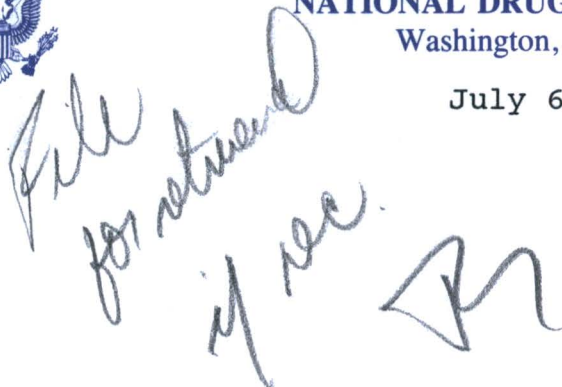 NATIONAL DRUG
Washington,
July 6
File
for retrieval
if nec.